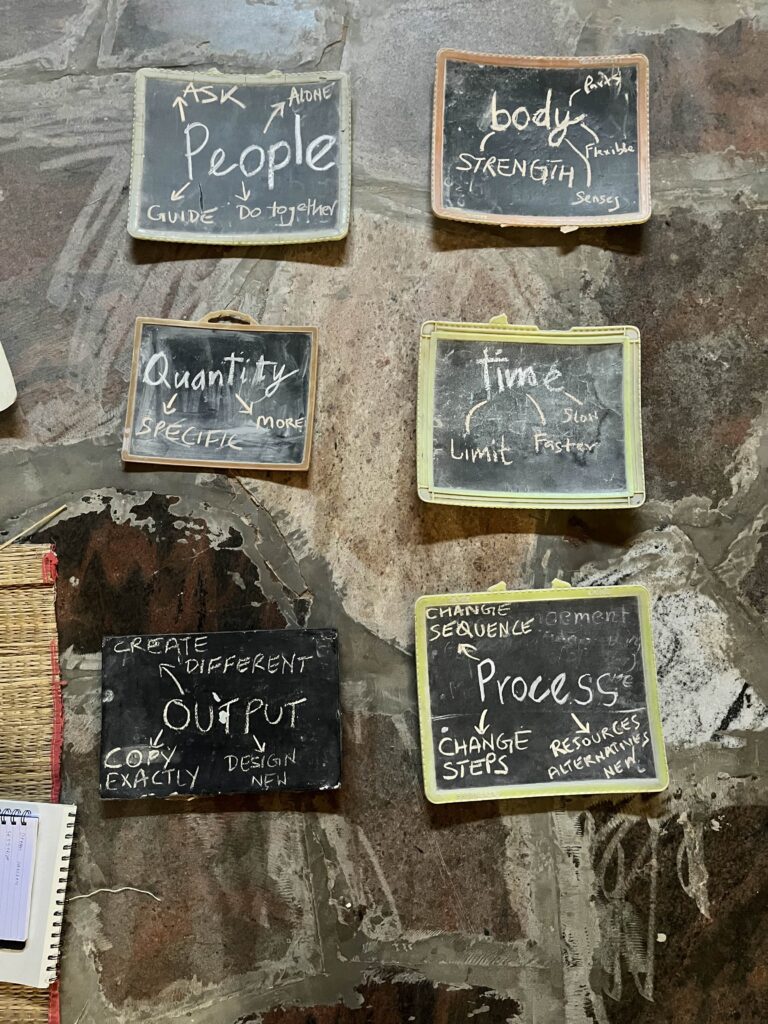 ASK
ALONE
People
GUIDE
Do together
Parts
body
Flexible
STRENGTH
Senses
Quantity
SPECIFIC
MORE
Time
Slow
Limit
Faster
CREATE
DIFFERENT
OUTPUT
COPY
EXACTLY
DESIGN
NEW
CHANGE
SEQUENCE
Process
CHANGE
STEPS
RESOURCES
ALTERNATIVES
NEW